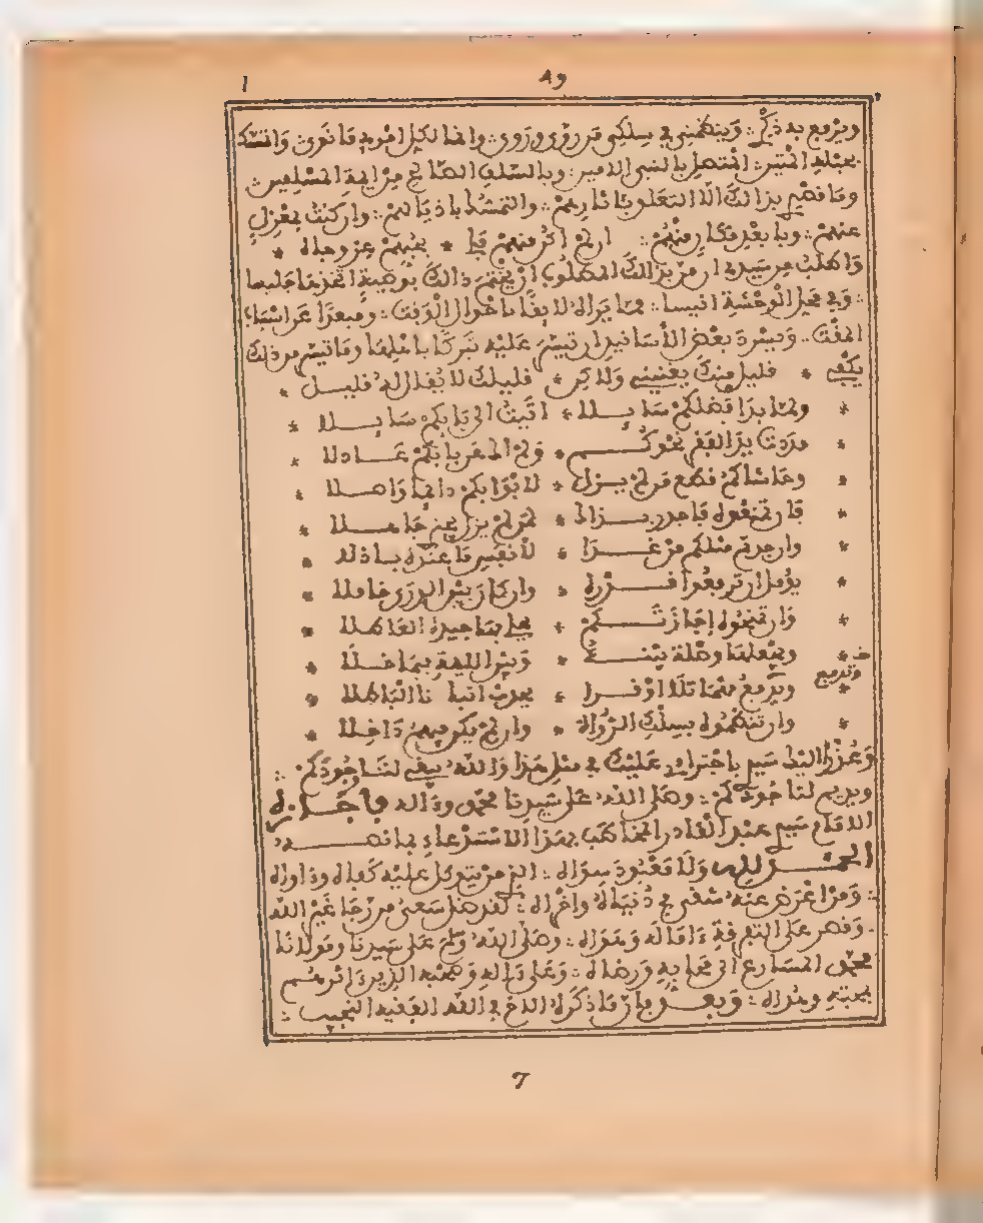 ا ٨٩
ويرفع به ذكري وينظمني في سلك من روى وروي وانما لكل امرئ ما نوى وانتسك
بحبله المتين المتصل بالنبي الامين وبالسلف الصالح من ايمة المسلمين
وما قصدي بذالك الا التعلق باثارهم والتمسك باذيالهم وان كنت بمعزل
عنهم وبا بعد مكان منهم ان لم اكن منهم فلي * بحبهم عز وجاه *
واطلب من سيدي ان من بذالك المطلوب ان يختم ذالك بوصية اتخذها جليسا
وفي محل الوحشة انيسا مما يراه لايقا باحوال الوقت ومبعدا عن اسباب
المقت وبسرد بعض الأسانيد ان تيسر عليه تبركا باهلها وما تيسر من ذلك
يكفي * قليل منك يكفيني ولاكن * قليلك لا يقال له قليل *
* ولما بدا فضلكم سايلا * اتيت الى بابكم سايلا *
* مددت يد الفقر نحوكم * ولم الف عن بابكم عادلا *
* وحاشاكم قطع من لم يزل * لابوابكم دايما واصلا *
* فان تمنعوه فاجدر بذا * لمن لم يزل بكم جاهلا *
* وان جدتم مثلكم من غدا * لأنفس ما عنده باذلا *
* يؤمل ان ترفعوا قدره * وان كان بين الورى خاملا *
* وان تمنحوه اجازتكم * فحلي بها جيده العاطلا *
* ويجعلها وصلة بينه * وبين الاله بها واصلا *
* ويرفع منها تلاا وقرا * يعرف انباءنا الباطلا *
خ وترفع
* وان تنظموه بسلك الرواة * وان لم يكن فيهم داخلا *
وعذرا اليك سيدي باجترامي عليك في مثل هذا والله يبقي لنا وجودكم
ويديم لنا جودكم وصلى الله على سيدنا محمد وءاله فاجازه
الامام سيدي عبد القادر المخاطب بهذا الاستدعاء بما نصه
الحمد لله ولا معبود سواه الذي من يتوكل عليه كفاه وداواه
ومن اعرض عنه شقي في دنياه واخراه لقد ضل سعى من رجا غير الله
وقصر على التفرقة ذا قاله وهواه وصلى الله وسلم على سيدنا ومولانا
محمد المسارع الى محابه ورضاه وعلى ءاله وصحبه الذين ءاثرهم
بحبته وهداه وبعد فان ما ذكره الاخ في الله الفقيه النجيب
7